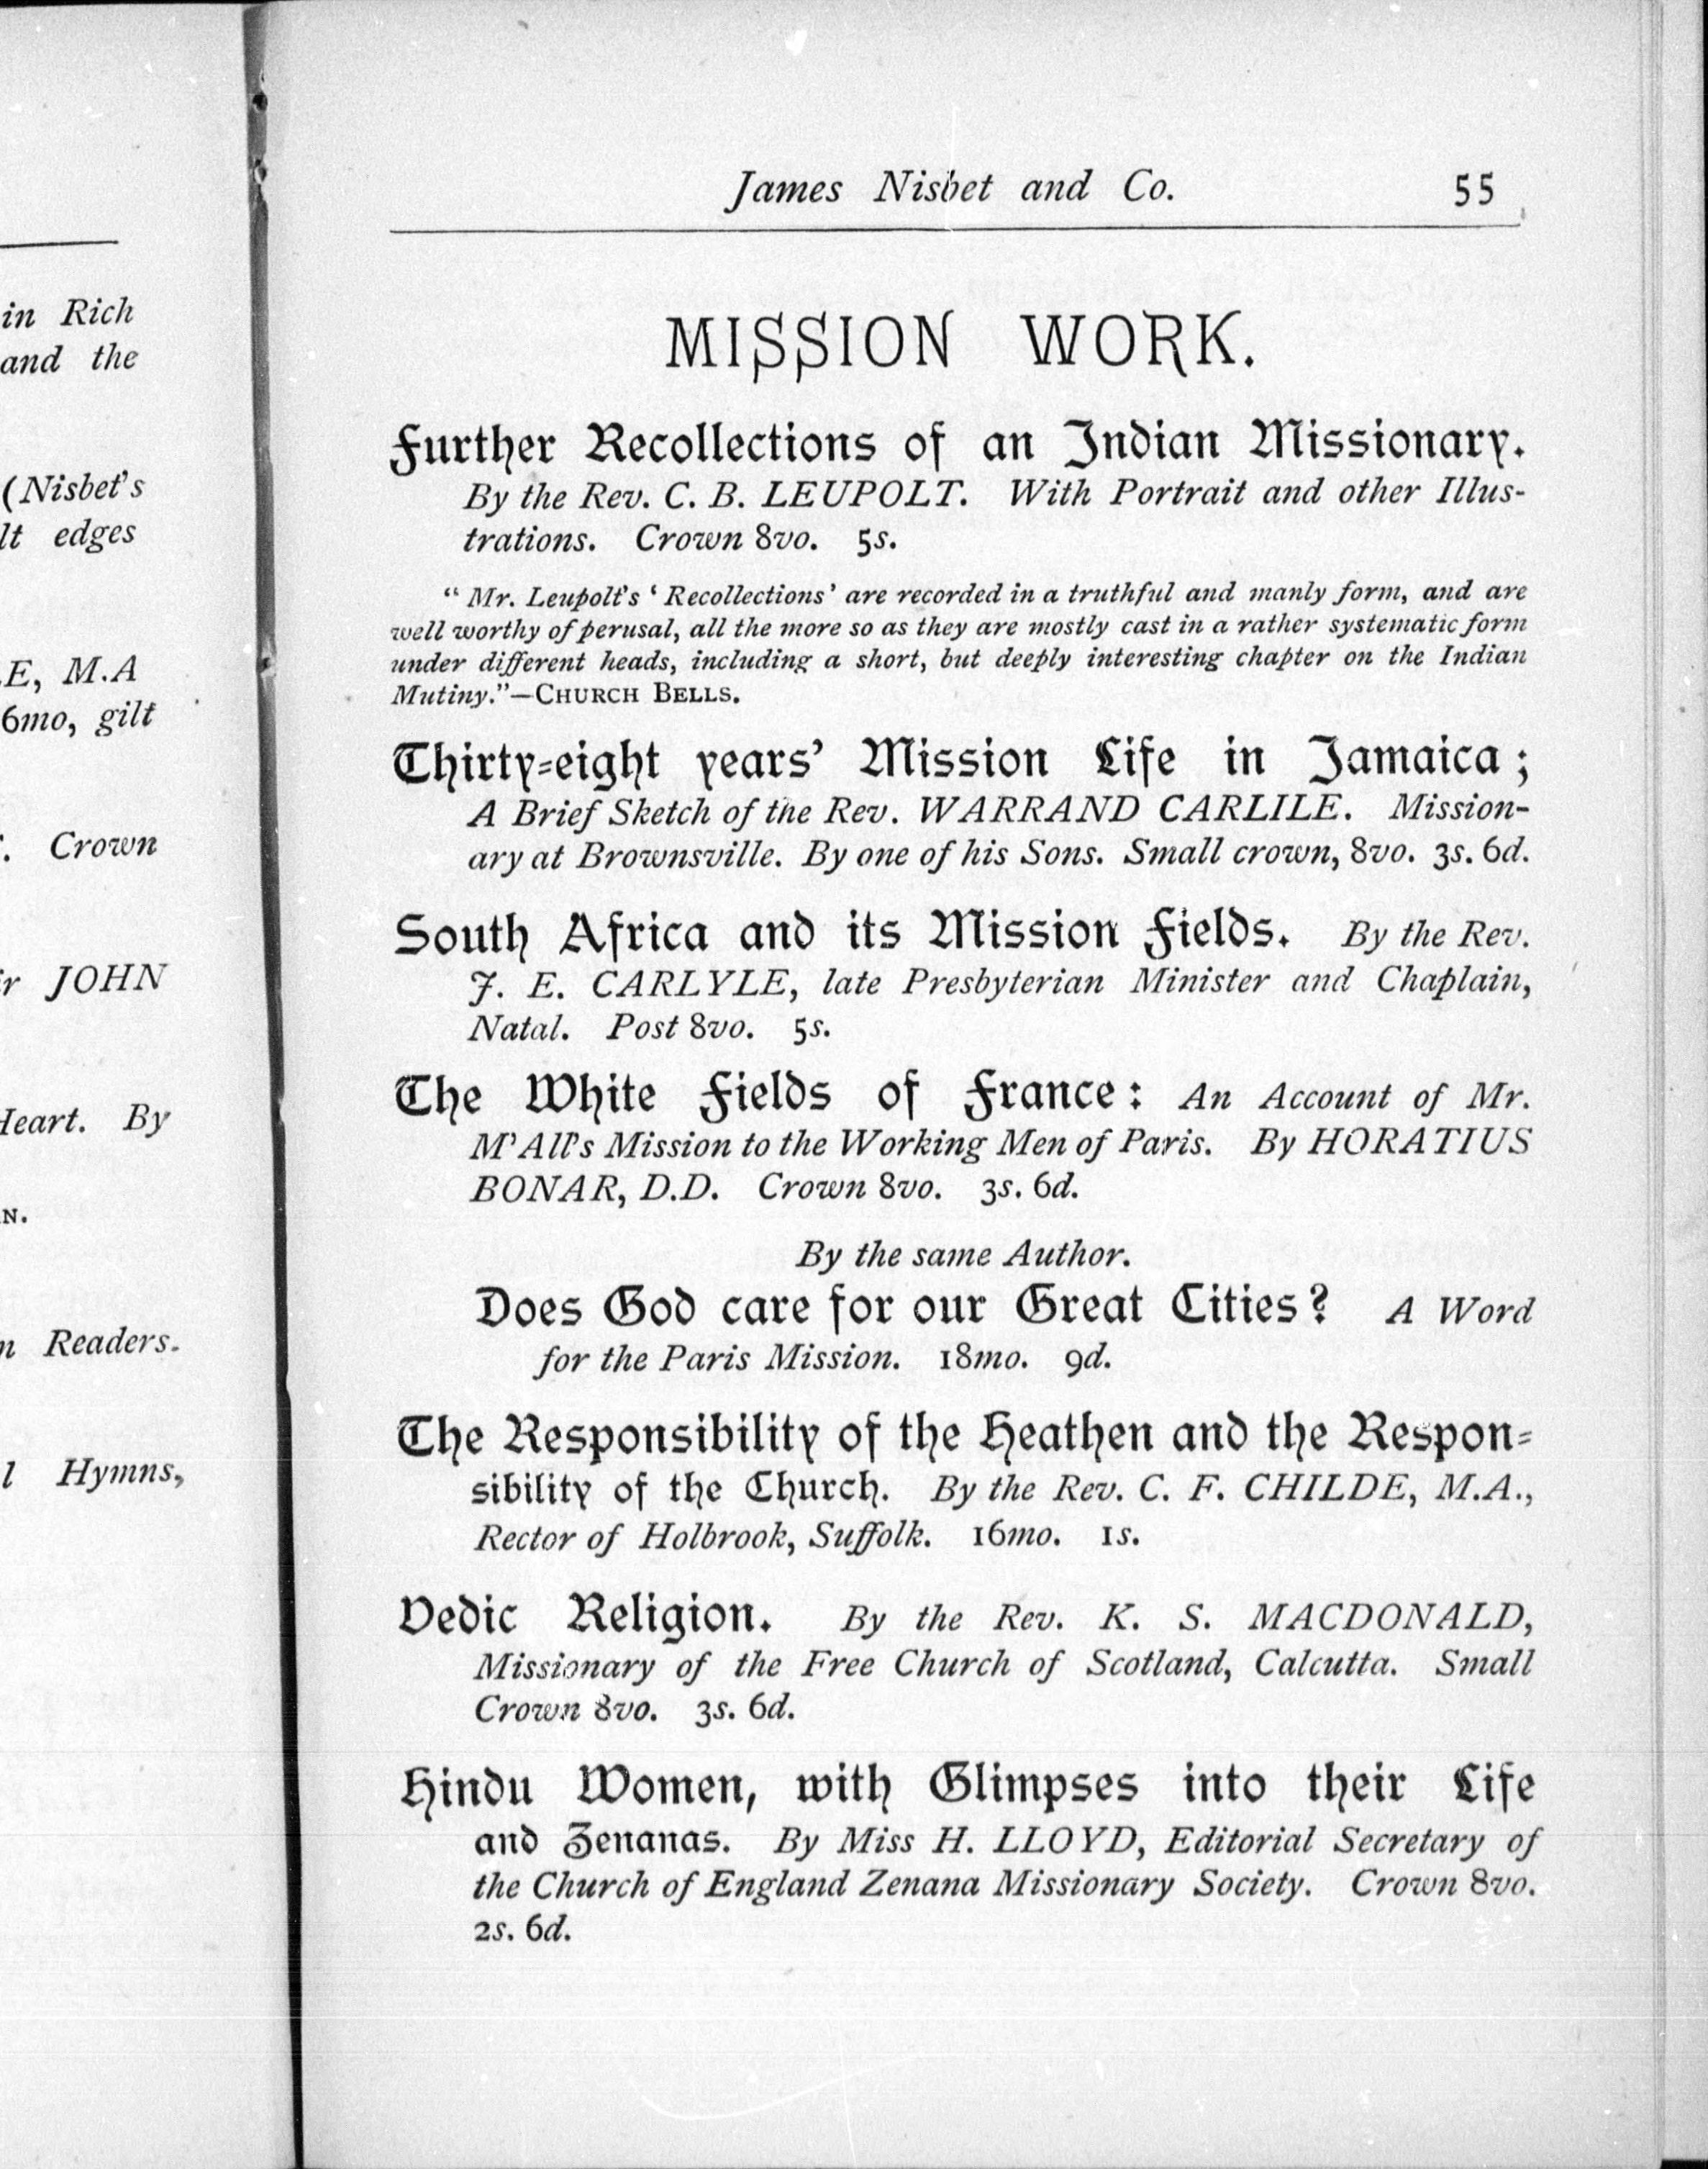 in Rich
and the
(Nisbet's
lt edges
E, M.A
6mo, gilt
Crown
r JOHN
Heart. By
N.
n Readers.
l Hymns,
James Nisbet and Co. 55
MISSION WORK.
Further Recollections of an Indian Missionary.
By the Rev. C. B. LEUPOLT. With Portrait and other Illus-
trations. Crown 8vo. 5s.
"Mr. Leupolt's 'Recollections' are recorded in a truthful and manly form, and are
well worthy of perusal, all the more so as they are mostly cast in a rather systematic form
under different heads, including a short, but deeply interesting chapter on the Indian
Mutiny."—CHURCH BELLS.
Thirty-eight years' Mission Life in Jamaica;
A Brief Sketch of the Rev. WARRAND CARLILE. Mission-
ary at Brownsville. By one of his Sons. Small crown, 8vo. 3s. 6d.
South Africa and its Mission Fields. By the Rev.
J. E. CARLYLE, late Presbyterian Minister and Chaplain,
Natal. Post 8vo. 5s.
The White Fields of France: An Account of Mr.
M'All's Mission to the Working Men of Paris. By HORATIUS
BONAR, D.D. Crown 8vo. 3s. 6d.
By the same Author.
Does God care for our Great Cities? A Word
for the Paris Mission. 18mo. 9d.
The Responsibility of the Heathen and the Respon-
sibility of the Church. By the Rev. C. F. CHILDE, M.A.,
Rector of Holbrook, Suffolk. 16mo. 1s.
Vedic Religion. By the Rev. K. S. MACDONALD,
Missionary of the Free Church of Scotland, Calcutta. Small
Crown 8vo. 3s. 6d.
Hindu Women, with Glimpses into their Life
and Zenanas. By Miss H. LLOYD, Editorial Secretary of
the Church of England Zenana Missionary Society. Crown 8vo.
2s. 6d.